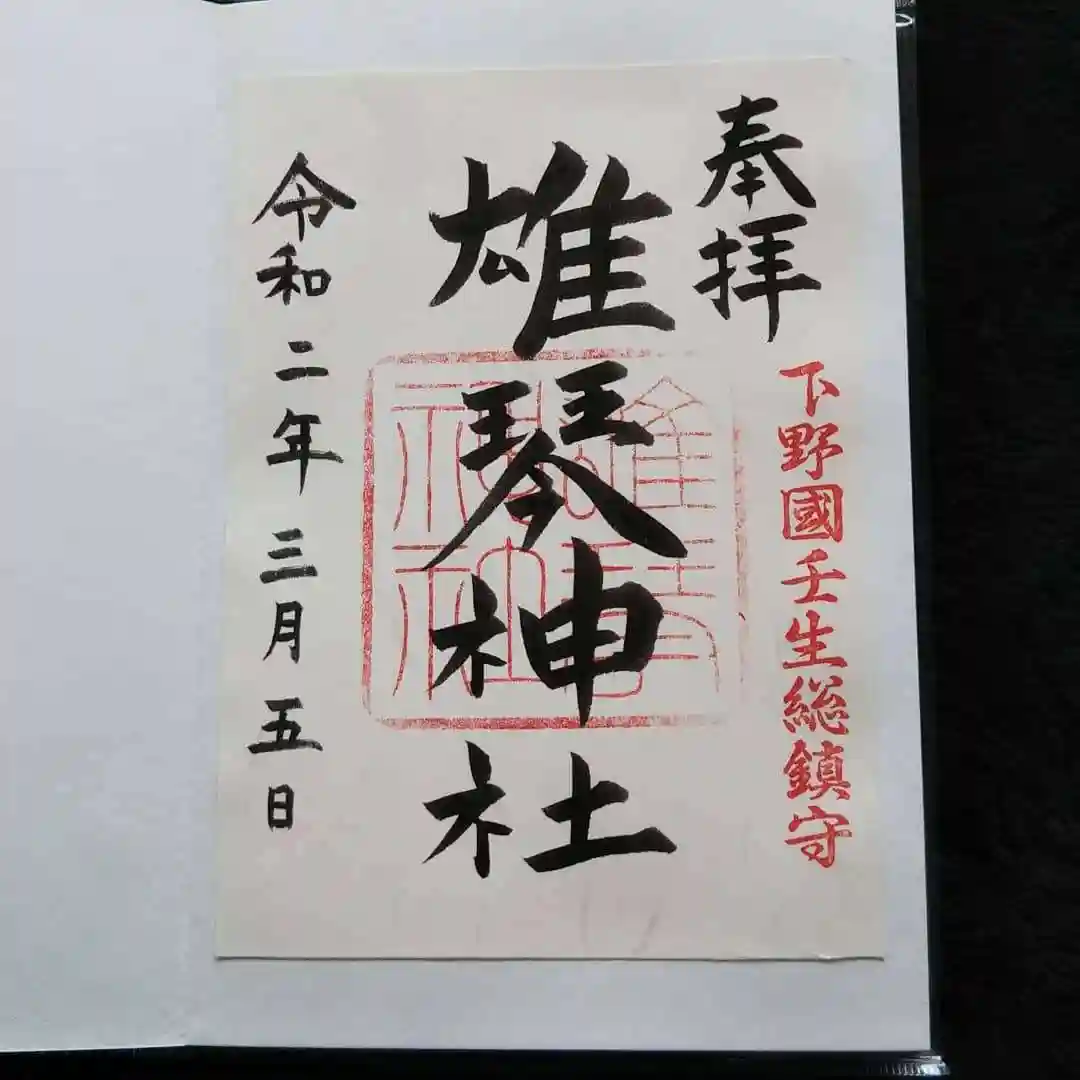 奉拝
下野國壬生総鎮守
雄琴神社
令和二年三月五日
雄琴神社